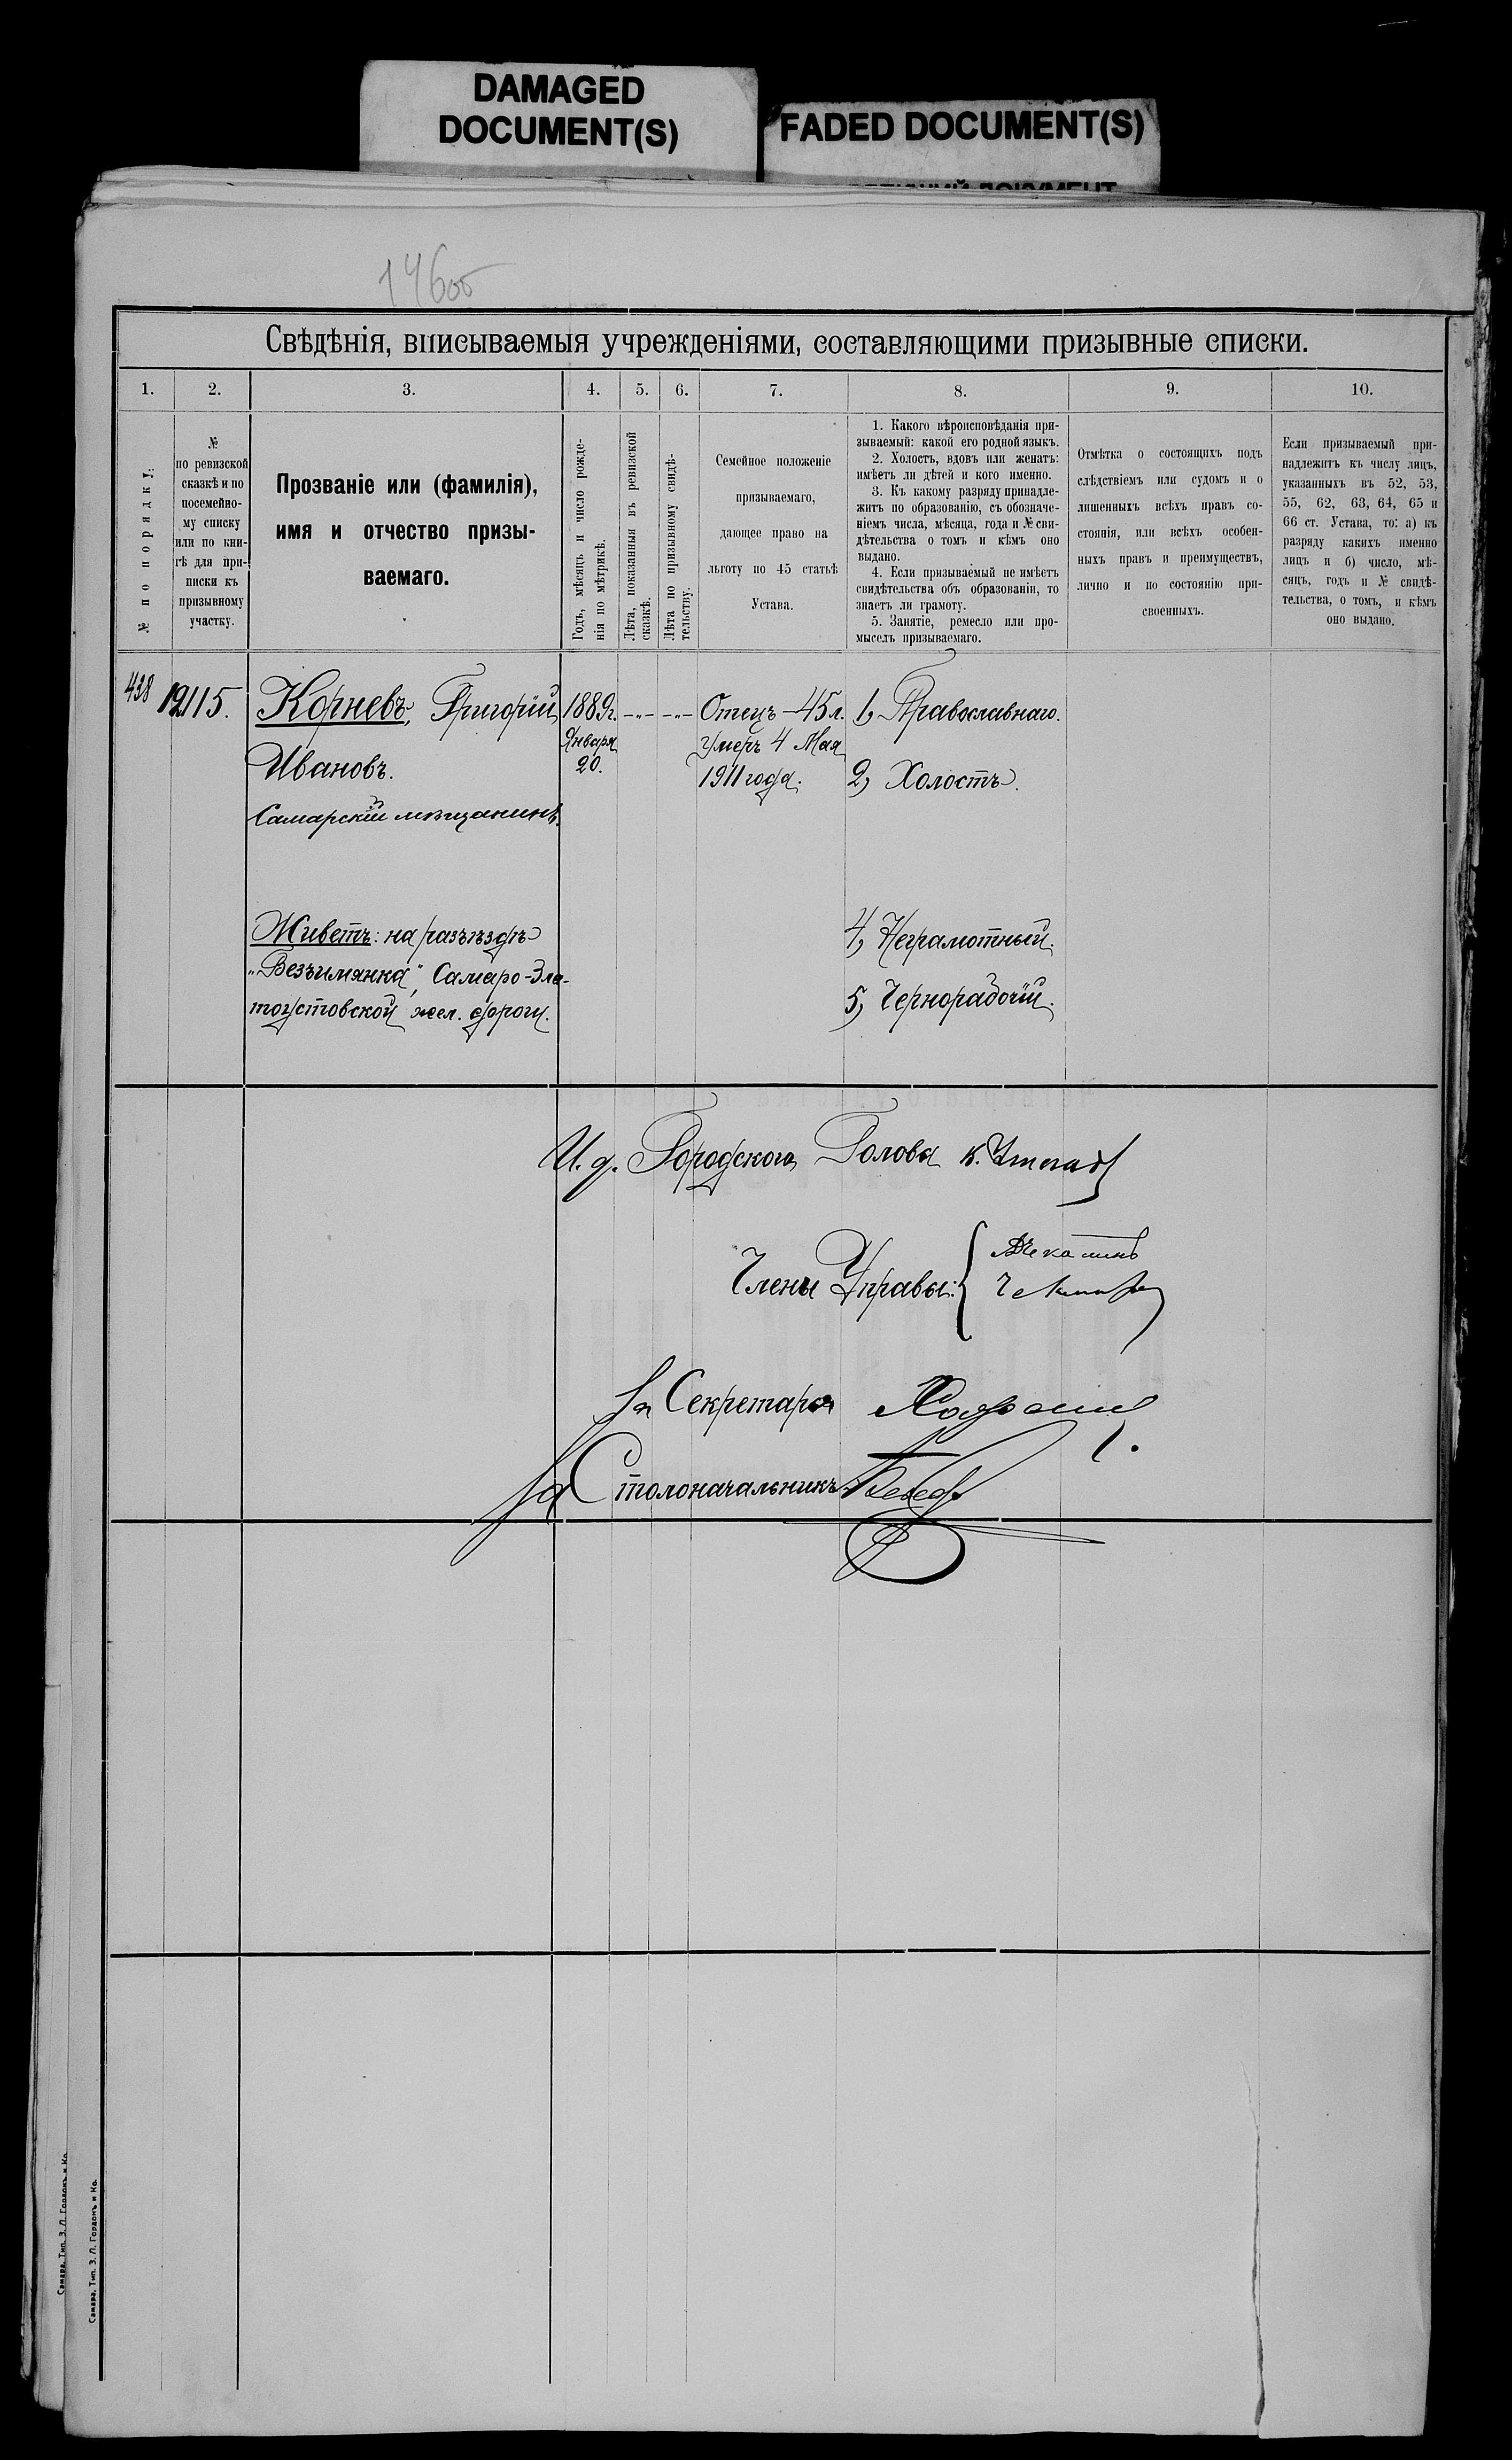 DAMAGED
DOCUMENT(S)
FADED DOCUMENT(S)
146об
Свѣдѣнія, вписываемыя учрежденіями, составляющими призывные списки.
1. 2. 3. 4. 5. 6. 7. 8. 9. 10.
№ по порядку.
№
по ревизской
сказкѣ и по
посемейно-
му списку
или по кни-
гѣ для при-
писки къ
призывному
участку.
Прозваніе или (фамилія),
имя и отчество призы-
ваемаго.
Годъ, мѣсяцъ и число рожде-
нія по мѣтрикѣ.
Лѣта, показанныя въ ревизской
сказкѣ.
Лѣта по призывному свидѣ-
тельству.
Семейное положеніе
призываемаго,
дающее право на
льготу по 45 статьѣ
Устава.
1. Какого вѣроисповѣданія при-
зываемый: какой его родной языкъ.
2. Холостъ, вдовъ или женатъ:
имѣетъ ли дѣтей и кого именно.
3. Къ какому разряду принадле-
житъ по образованію, съ обозначе-
ніемъ числа, мѣсяца, года и № сви-
дѣтельства о томъ и кѣмъ оно
выдано.
4. Если призываемый не имѣетъ
свидѣтельства объ образованіи, то
знаетъ ли грамоту.
5. Занятіе, ремесло или про-
мыселъ призываемаго.
Отмѣтка о состоящихъ подъ
слѣдствіемъ или судомъ и о
лишенныхъ всѣхъ правъ со-
стоянія, или всѣхъ особен-
ныхъ правъ и преимуществъ,
лично и по состоянію при-
своенныхъ.
Если призываемый при-
надлежитъ къ числу лицъ,
указанныхъ въ 52, 53,
55, 62, 63, 64, 65 и
66 ст. Устава, то: а) къ
разряду какихъ именно
лицъ и б) число, мѣ-
сяцъ, годъ и № свидѣ-
тельства, о томъ, и кѣмъ
оно выдано.
438
12115.
Корневъ, Григорій
Ивановъ.
Самарскій мѣщанинъ.
Живетъ: на разъѣздѣ
„Безъимянка", Самаро-Зла-
тоустовской жел. дороги.
1889г.
Января
20.
-„- -„-
Отецъ - 45 л.
умеръ 4 Мая
1911 года.
1, Православнаго.
2, Холостъ.
4, Неграмотный.
5, Чернорабочій.
И. д. Городского Голова
Члены Управы:
За Секретаря
За Столоначальникъ
Самара. Тип. З. Л. Гордонъ и Ко.
Самара. Тип. З. Л. Гордонъ и Ко.